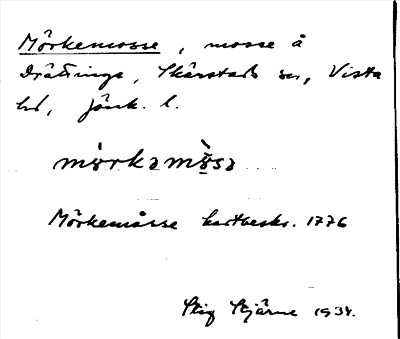 Mörkemosse, mosse å
Drättinge, Skärstads sn, Vista
hd, Jönk. l.
mörkəmòsə
Mörkemåsse kartbeskr. 1776
Stig Stjärne 1934.